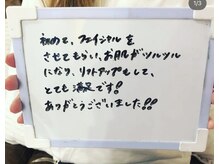 1/3
初めて、フェイシャルを
させてもらい、お肌がツルツル
になり、リフトアップもして、
とても満足です!
ありがとうございました!!